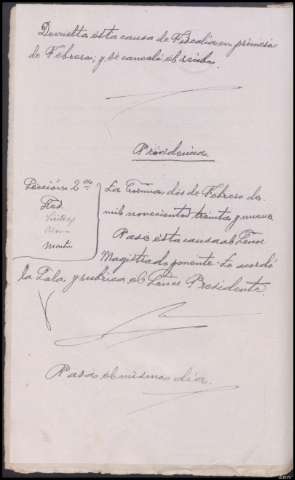 Devuelta esta causa de Fiscalía en primero
de Febrero, y se canceló el recibo.
Providencia
Sección 2ª
La Coruña dos de Febrero de
mil novecientos treinta y nueve
Martín
Pase esta causa al Señor
Magistrado ponente. Lo acordó
la Sala, y rubrica el Señor Presidente
Pasa el mismo día.